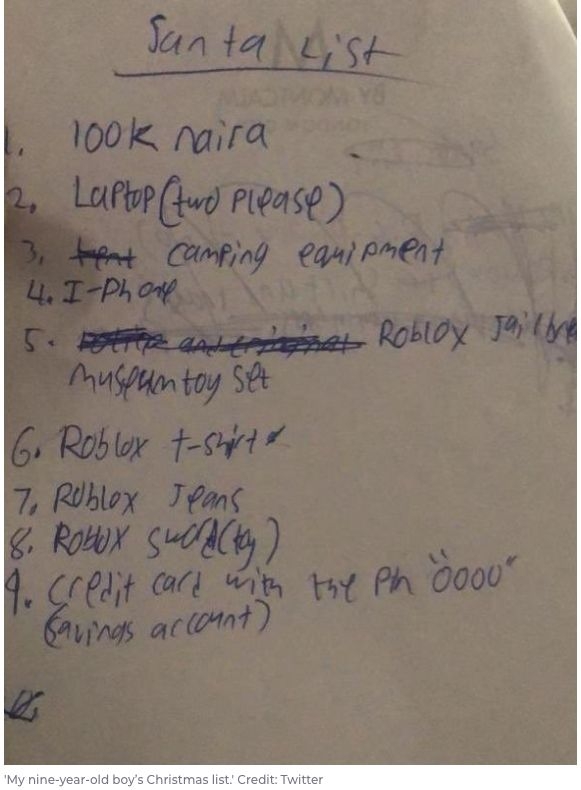 Santa List
1. 100k naira
2. Laptop (two please)
3. tent camping equipment
4. I-Phone
5. and criminal Roblox Jailbre
museum toy set
6. Roblox t-shirt
7. Roblox Jeans
8. Roblox sword(toy)
9. credit card with the pin "0000"
(savings account)
'My nine-year-old boy's Christmas list.' Credit: Twitter